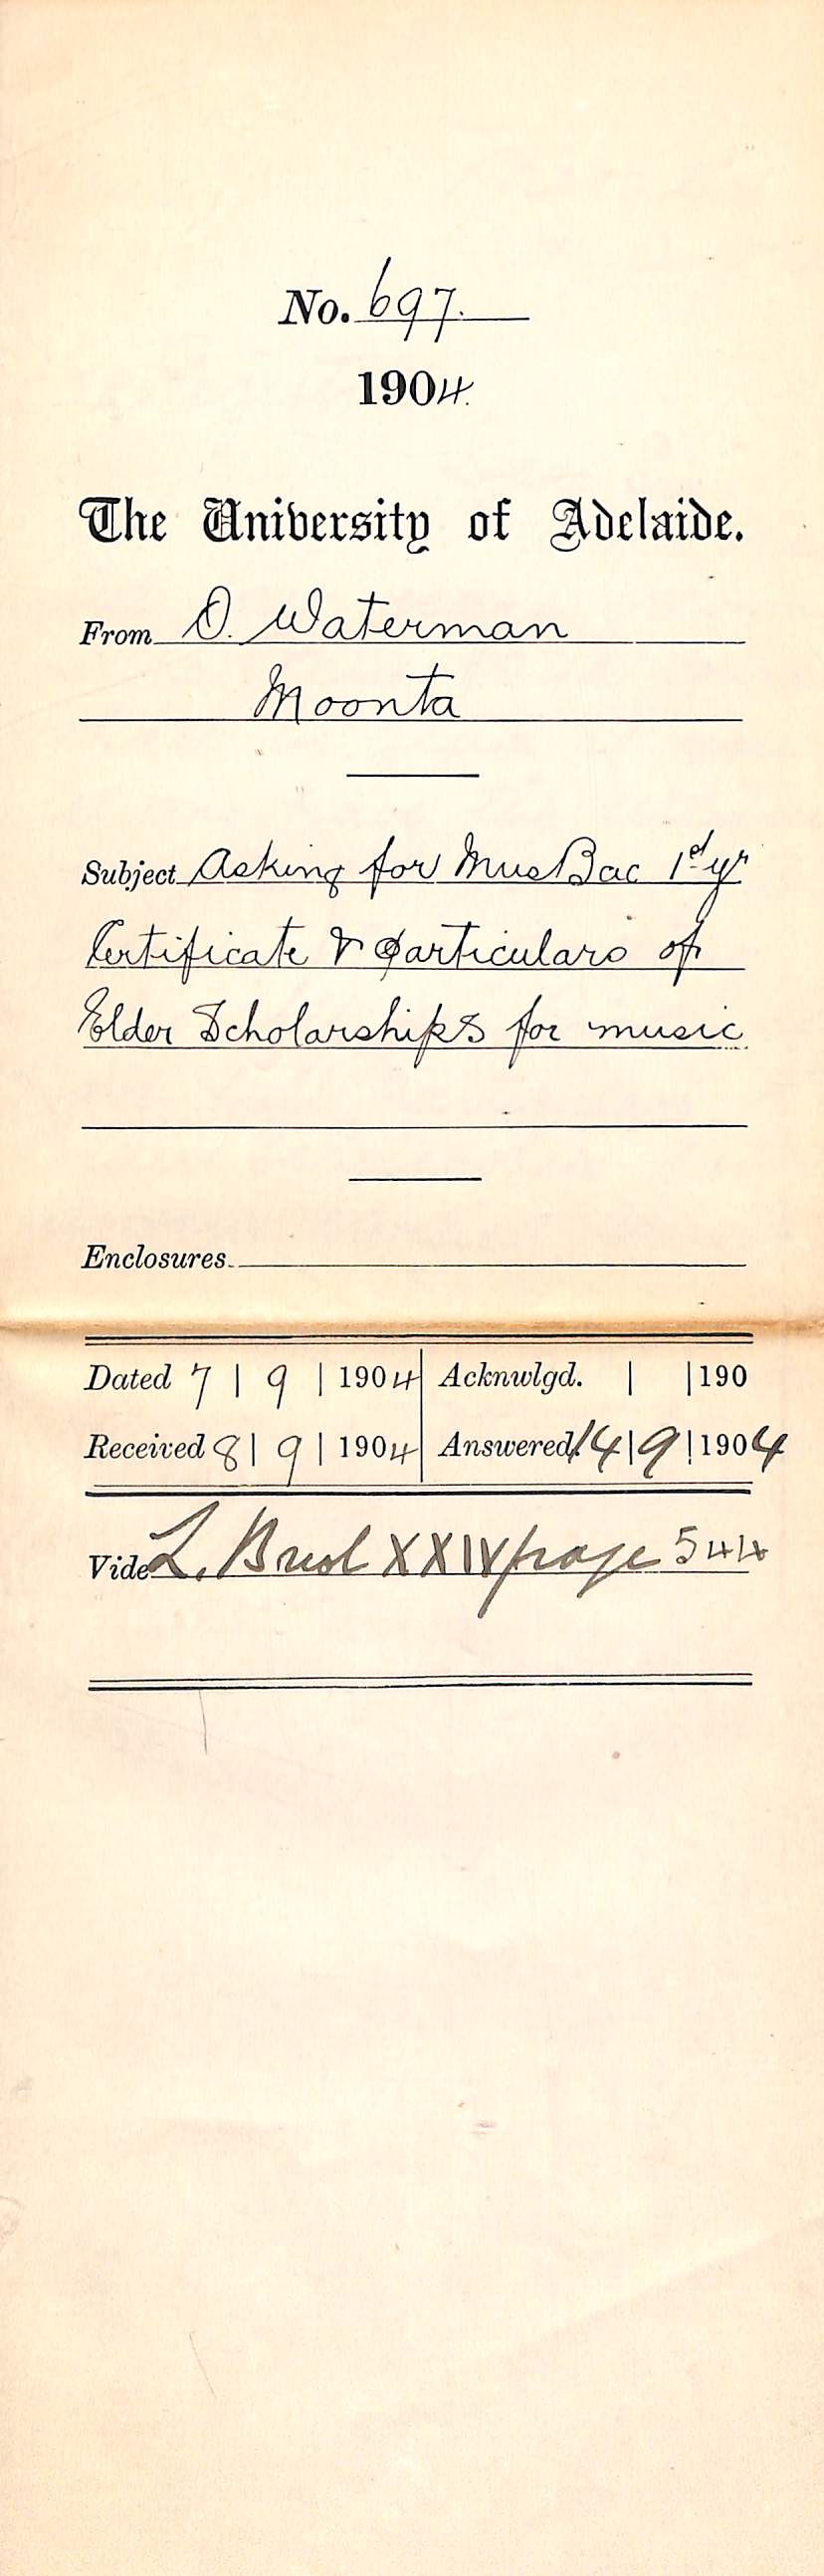 No. 697.
1904.
The University of Adelaide.
From O. Waterman
Moonta
Subject Asking for MusBac 1st yr
Certificate & particulars of
Elder Scholarships for music
Enclosures
Dated 7 | 9 | 1904 Acknwlgd. | | 190
Received 8 | 9 | 1904 Answered 14 | 9 | 1904
Vide L. XXIV page 544